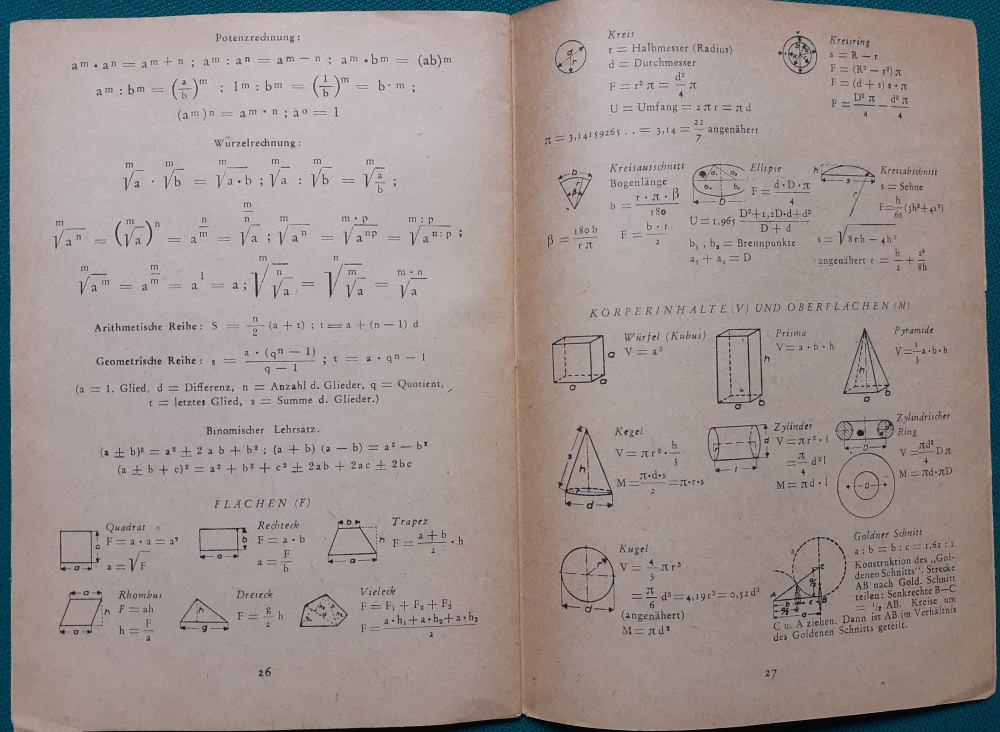 Potenzrechnung:
aᵐ • aⁿ = aᵐ⁺ⁿ ; aᵐ : aⁿ = aᵐ⁻ⁿ ; aᵐ • bᵐ = (ab)ᵐ
aᵐ : bᵐ = (a/b)ᵐ ; 1ᵐ : bᵐ = (1/b)ᵐ = b⁻ᵐ ;
(aᵐ)ⁿ = aᵐ•ⁿ ; a⁰ = 1
Wurzelrechnung:
ᵐ√a · ᵐ√b = ᵐ√(a•b) ; ᵐ√a : ᵐ√b = ᵐ√(a/b) ;
ᵐ√(aⁿ) = (ᵐ√a)ⁿ = a^(n/m) = ^(m/n)√a ; ᵐ√(aⁿ) = ^(m•p)√(aⁿᵖ) = ^(m:p)√(a^(n:p)) ;
ᵐ√(aᵐ) = a^(m/m) = a¹ = a ; ᵐ√(ⁿ√a) = ⁿ√(ᵐ√a) = ^(m•n)√a
Arithmetische Reihe: S = n/2 (a + t) ; t = a + (n − 1) d
Geometrische Reihe: s = a • (qⁿ − 1)/(q − 1) ; t = a • qⁿ − 1
(a = 1. Glied, d = Differenz, n = Anzahl d. Glieder, q = Quotient,
t = letztes Glied, s = Summe d. Glieder.)
Binomischer Lehrsatz.
(a ± b)² = a² ± 2 ab + b² ; (a + b) (a − b) = a² − b²
(a ± b + c)² = a² + b² + c² ± 2ab + 2ac ± 2bc
FLÄCHEN (F)
Quadrat
F = a • a = a²
a = √F
a
a
Rechteck
F = a • b
a = F/b
b
a
Trapez
F = (a + b)/2 • h
b
h
a
Rhombus
F = ah
h = F/a
h
a
Dreieck
F = g/2 h
h
g
Vieleck
F = F₁ + F₂ + F₃
F = (a•h₁ + a•h₂ + a•h₃)/2
26
Kreis
r = Halbmesser (Radius)
d = Durchmesser
F = r² π = d²/4 π
U = Umfang = 2 π r = π d
π = 3,14159265 . . = 3,14 = 22/7 angenähert
d
r
Kreisring
s = R − r
F = (R² − r²) π
F = (d + s) s • π
F = D² π/4 − d² π/4
Kreisausschnitt
Bogenlänge
b = r • π • β/180
β = 180 b/r π
F = b • r/2
b
r
β
Ellipse
F = d • D • π/4
U = 1,965 (D² + 1,2D•d + d²)/(D + d)
b₁ , b₂ = Brennpunkte
a₁ + a₂ = D
a₁
a₂
b₁
b₂
D
Kreisabschnitt
s = Sehne
F = h/6s (3h² + 4s²)
s = √(8rh − 4h²)
angenähert r = h/2 + s²/8h
h
s
r
KÖRPERINHALTE (V) UND OBERFLÄCHEN (M)
Würfel (Kubus)
V = a³
a
a
a
Prisma
V = a • b • h
h
a
b
Pyramide
V = 1/3 a • b • h
h
a
b
Kegel
V = π r² • h/3
M = π•d•s/2 = π•r•s
s
h
r
d
Zylinder
V = π r² • l
= π/4 d² l
M = π d • l
r
d
l
Zylindrischer
Ring
V = πd²/4 Dπ
M = πd•πD
D
D
Kugel
V = 4/3 π r³
= π/6 d³ = 4,19 r³ = 0,52 d³
(angenähert)
M = π d²
r
d
Goldner Schnitt
a : b = b : c = 1,62 : 1
Konstruktion des „Gol-
denen Schnitts“. Strecke
AB nach Gold. Schnitt
teilen: Senkrechte B—C
= ½ AB. Kreise um
C u. A ziehen. Dann ist AB im Verhältnis
des Goldenen Schnitts geteilt.
A
B
C
27